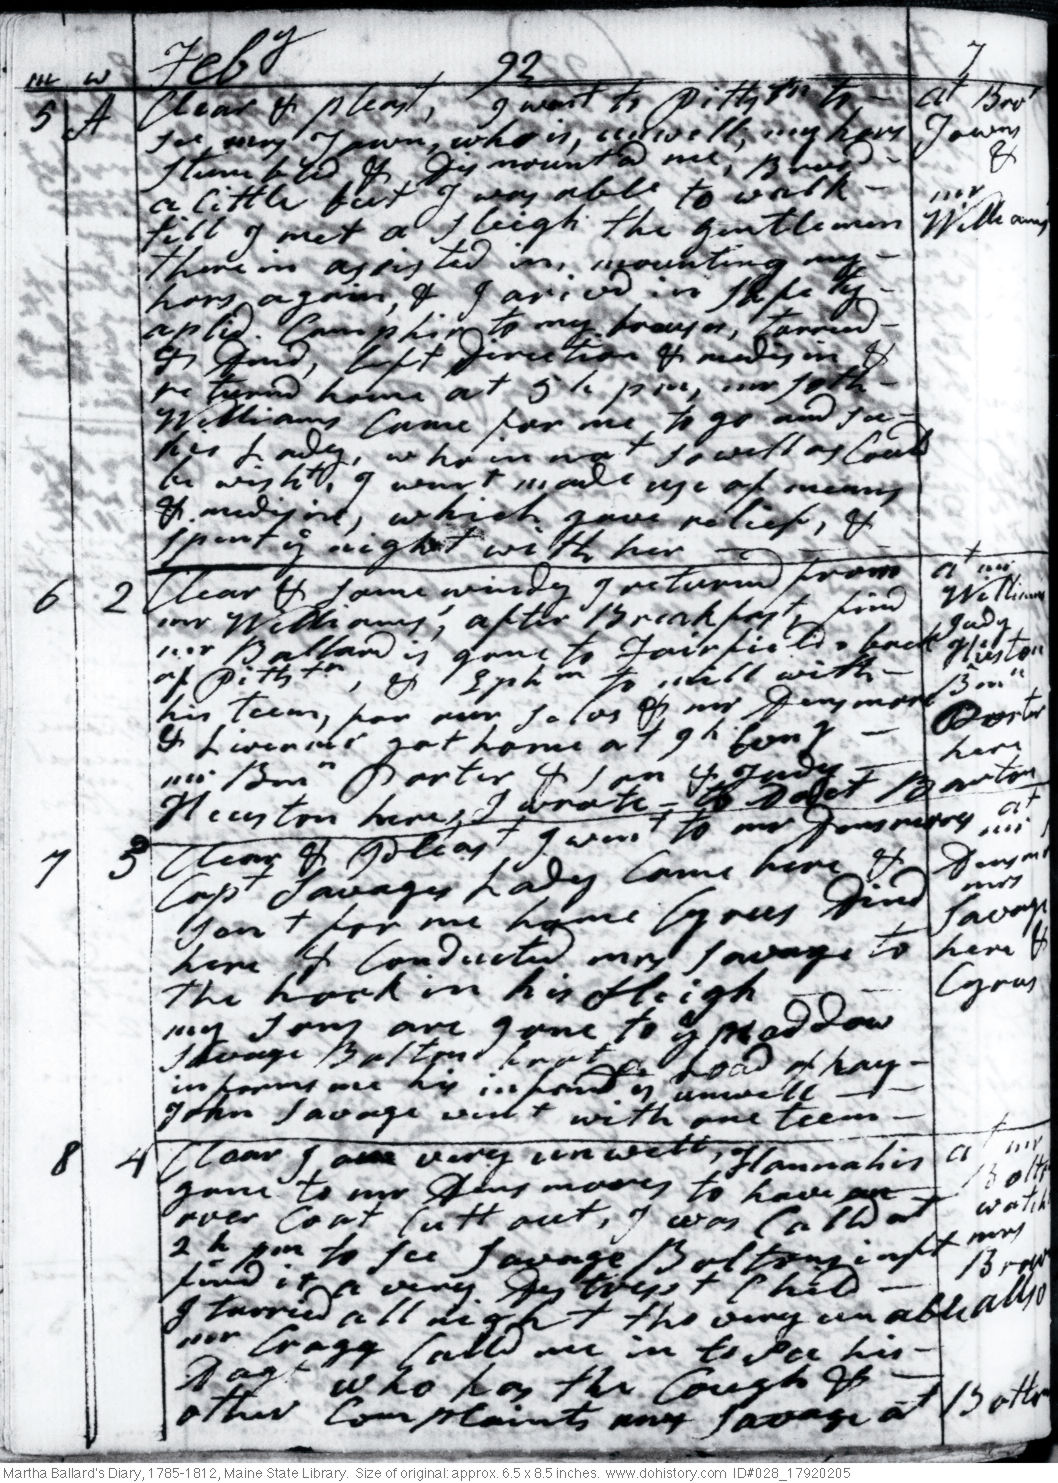 m w Feby 92 7
5 A Clear & pleast, I went to Pittstn to, at Bror
see, mrs Town, who is, unwell, my hors Towns
stumbled & Dismounted me, Bruisd &
a little but I was able to walk mr
till I met a sleigh the gentlemen Williams
therein assisted in, mounting my
hors again, & I arivd in safety
aplid. Camphir to my bruises, tarried
& Dind, left Direction & medisin &
returnd home at 5 h pm, mr
Williams Came for me to go and see
his Lady, who in not so well as Could
be wisht, I went made use of means
& medisine, which gave relief, &
spent ye night with her
6 2 Clear & some windy I returnd from at mr
mr Williams', after Breakfast, find Williams
mr Ballard is gone to Fairfield & back Judy
of Pittstn, & Ephm to mill with Heuston
his teem, for our selvs & mr Densmore Bmn
& Livermr got home at 9h Evng Porter
mr Bmn Porter & son & Judy here
Heuston here, I wrote to Dolt Barton
7 3 Clear & pleast I went to mr Densmores at mr
Capt Savages Lady Came here & Densm
sent for me home Cyrus Dind mrs Savage
here & Conducted mrs Savage to here &
the hook in his sleigh Cyrus
my sons are gone to ye meddow
Savage Bolton brot a load of hay
informs me his infant is unwell
John Savage went with one teem
8 4 Clear I am very unwell, Hannah is at mr
gone to mr Densmores to have an Bolto
over Coat Cutt out, I was Calld at watch
2 h pm to see Savage Boltons inft mrs
find it a very Distrest Child Brow
I tarried all night tho very unable allso
mr Cragg Calld me in to see his
Dagt who has the Cough &
other Complaints mrs Savage at Bolton
Martha Ballard's Diary, 1785-1812, Maine State Library. Size of original: approx. 6.5 x 8.5 inches. www.dohistory.com ID#028_17920205